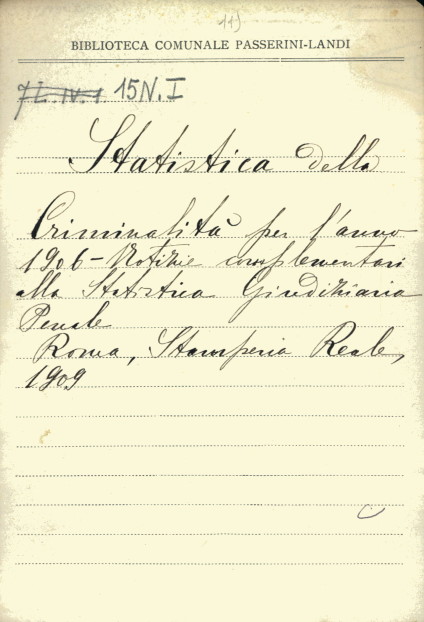 115
BIBLIOTECA COMUNALE PASSERINI-LANDI
7L. IV. 1 15N. I
Statistica della
Criminalità per l'anno
1906 - Notizie complementari
alla Statistica Giudiziaria
Penale
Roma, Stamperia Reale,
1909